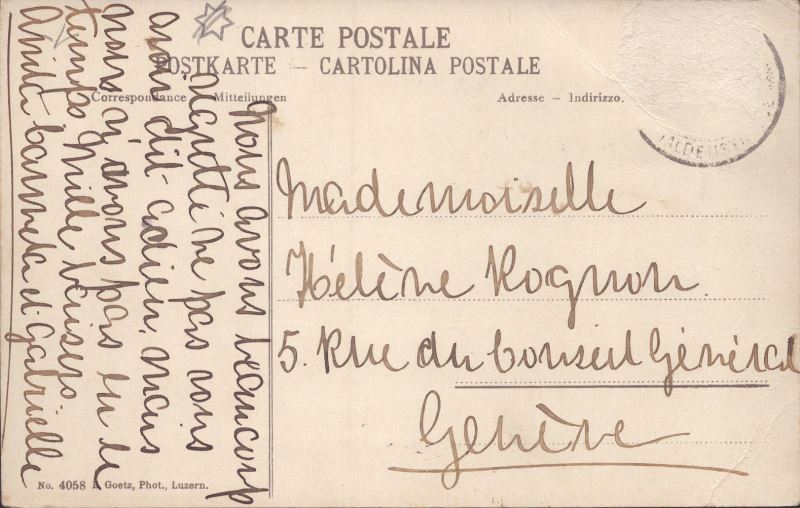 CARTE POSTALE
POSTKARTE — CARTOLINA POSTALE
Correspondance — Mitteilungen
Adresse — Indirizzo.
Nous avons beaucoup
regretté ne pas vous
avoir dit adieu, mais
nous n'avons pas eu le
temps Mille baisers
Anita Carmela et Gabrielle
Mademoiselle
Hélène Rognon.
5. Rue du Conseil Général
Genève
No. 4058 E. Goetz, Phot., Luzern.